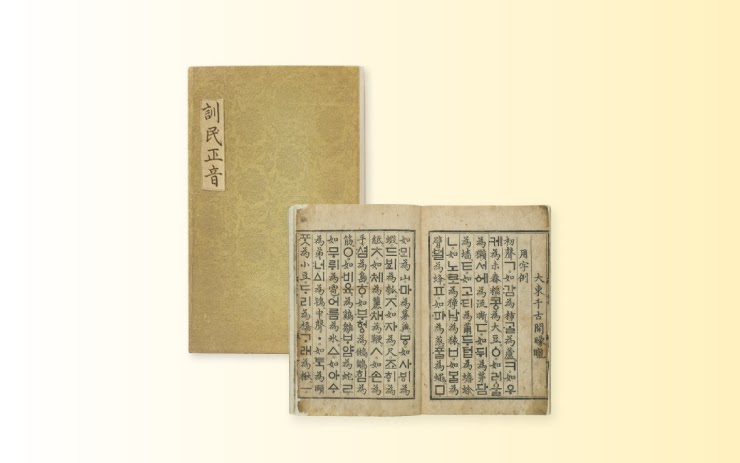 訓民正音
大東千古開矇矓
用字例
初聲ㄱ如감爲柿ᄀᆞᆯ爲蘆ㅋ如우
케爲未舂稻콩爲大豆ㆁ如러울
爲獺서에爲流凘ㄷ如뒤爲茅담
爲墻ㅌ如고티爲繭두텁爲蟾蜍
ㄴ如노로爲獐납爲猿ㅂ如ᄇᆞᆯ爲
臂벌爲蜂ㅍ如파爲葱ᄑᆞᆯ爲蠅ㅁ
如뫼爲山마爲薯藇ㅸ如사ᄫᅵ爲
蝦드ᄫᅴ爲瓠ㅈ如자爲尺죠ᄒᆡ爲
紙ㅊ如체爲籭채爲鞭ㅅ如손爲
手셤爲島ㅎ如부헝爲鵂鶹힘爲
筋ㅇ如비육爲鷄雛ᄇᆞ얌爲蛇ㄹ
如무뤼爲雹어름爲氷ㅿ如아ᅀᆞ
爲弟너ᅀᅵ爲鴇中聲ㆍ如ᄐᆞᆨ爲頤
ᄑᆞᆺ爲小豆ᄃᆞ리爲橋ᄀᆞ래爲楸ㅡ